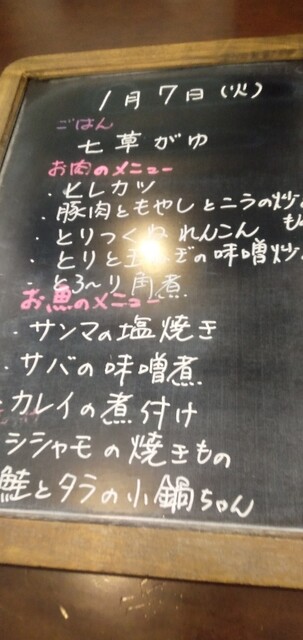 1月7日(火)
ごはん
七草がゆ
お肉のメニュー
・ヒレカツ
・豚肉ともやしとニラの炒め
・とりつくね れんこん も
・とりと玉ねぎの味噌炒
・とろ〜り角煮
お魚のメニュー
・サンマの塩焼き
・サバの味噌煮
・カレイの煮付け
シシャモの焼きもの
鮭とタラの小鍋ちゃん